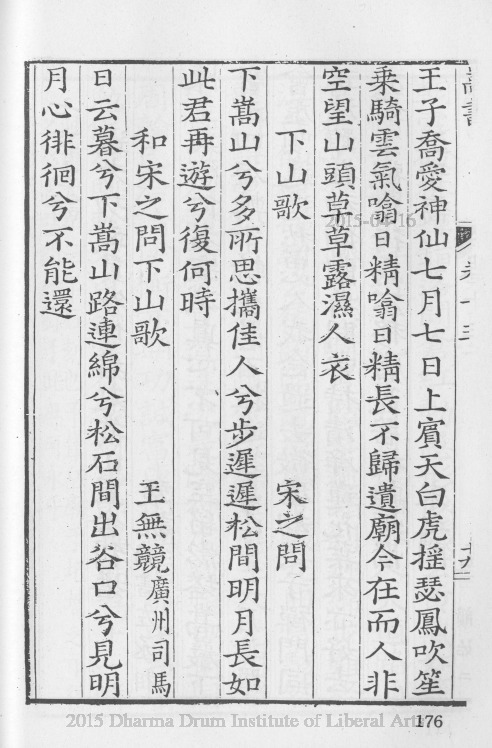 王子喬愛神仙七月七日上賓天白虎揺瑟鳳吹笙
乗騎雲氣噏日精噏日精長不歸遺廟今在而人非
空望山頭草草露濕人衣
下山歌 宋之問
下嵩山兮多所思攜佳人兮步遲遲松間明月長如
此君再遊兮復何時
和宋之問下山歌 王無競廣州司馬
日云暮兮下嵩山路連綿兮松石間出谷口兮見明
月心徘徊兮不能還
卷十三
2015-04-16
2015 Dharma Drum Institute of Liberal Arts
176